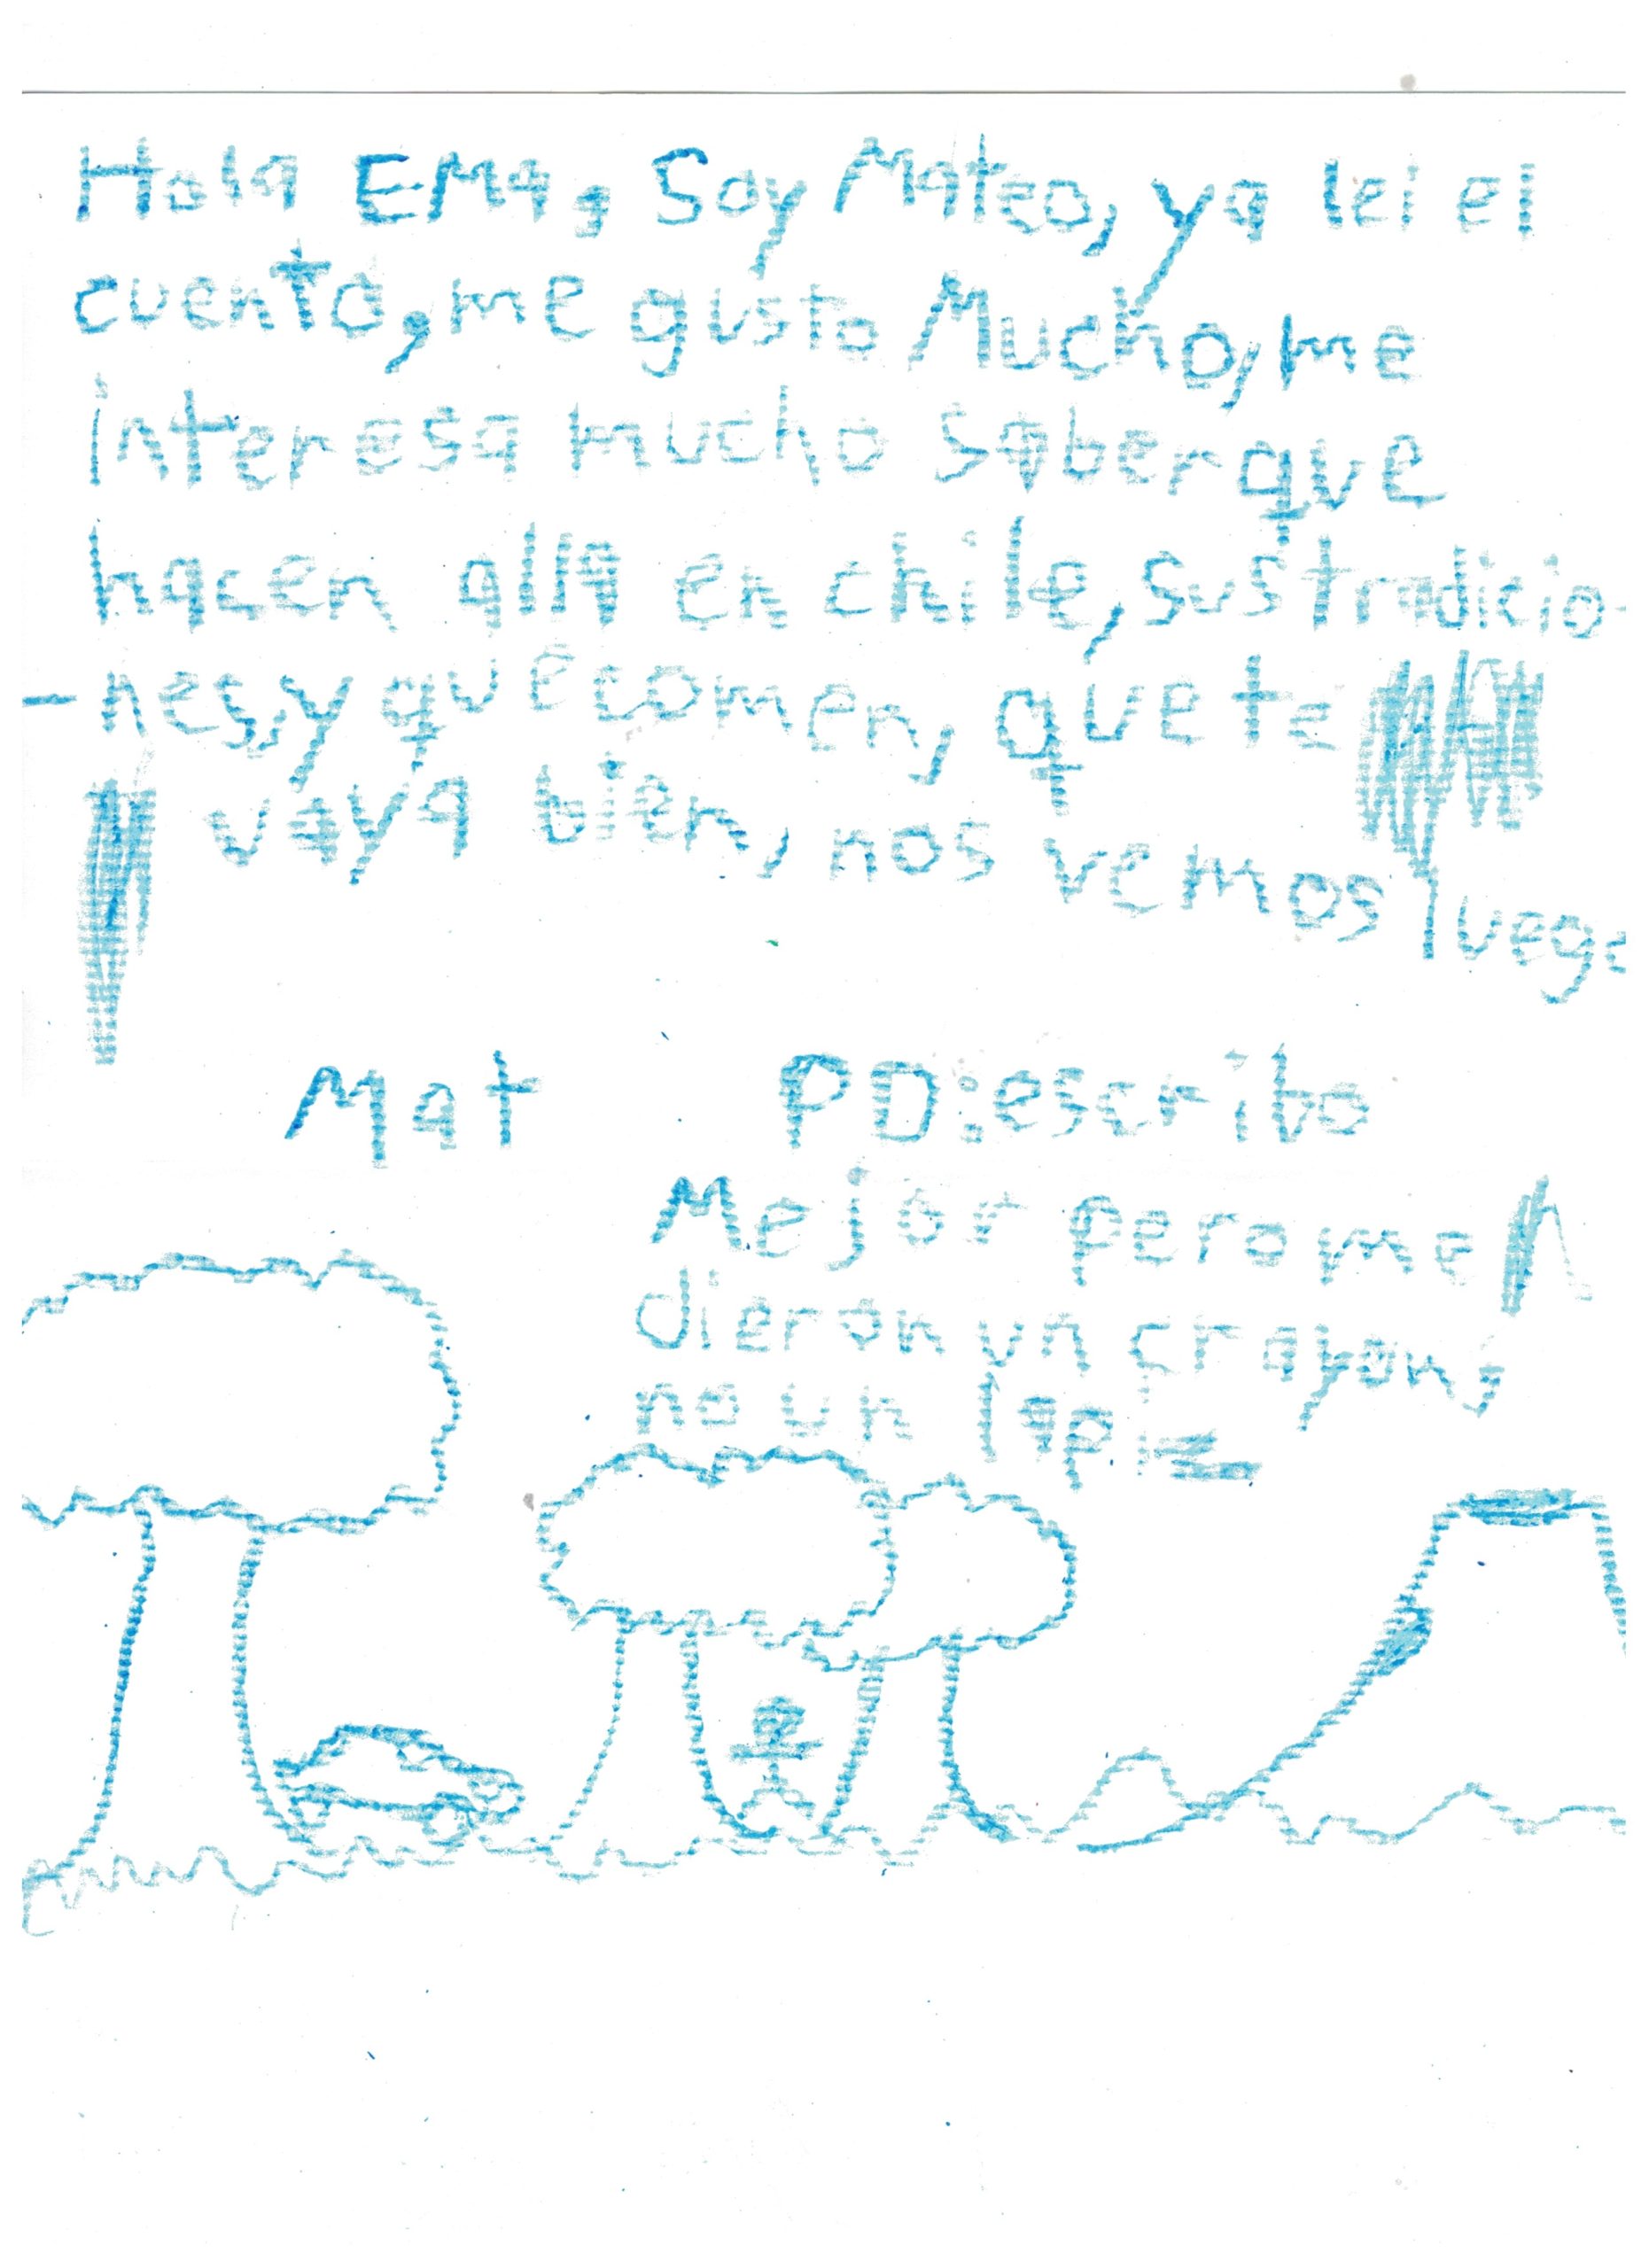 Hola EMa, Soy Mateo, ya lei el
cuento, me gusto Mucho, me
interesa mucho saber que
hacen alla en chile, sus tradicio-
-nes, y que comen, que te
vaya bien, nos vemos luego
Mat PD: escribo
Mejor pero me
dieron un crayon,
no un lapiz